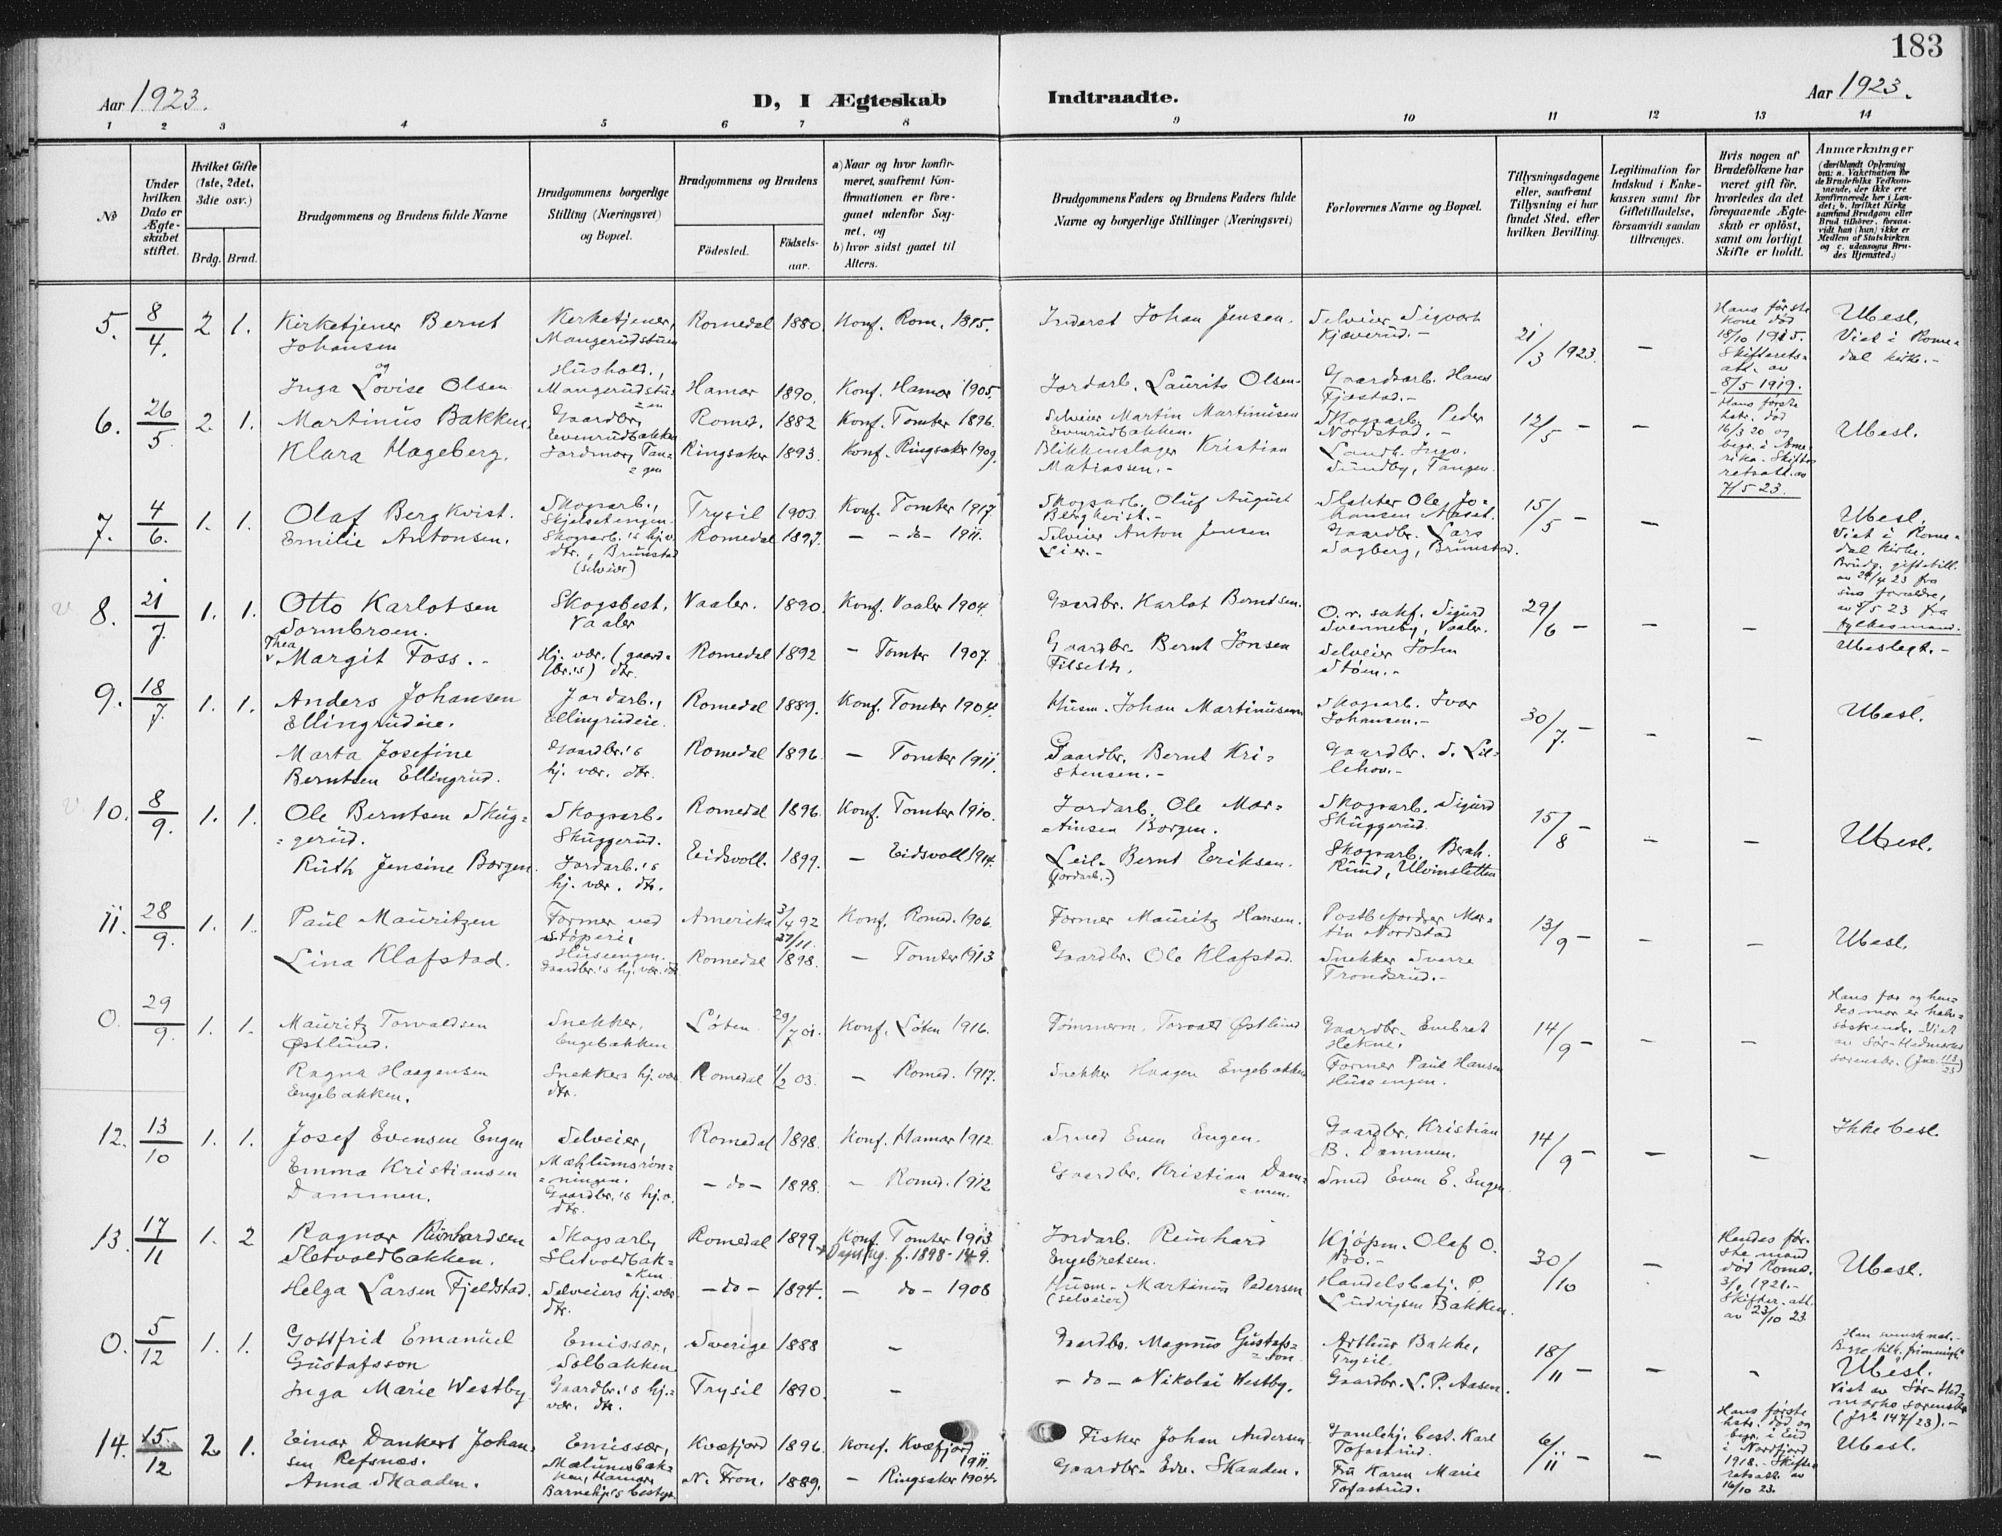 183
Aar 1923.
D, I Ægteskab Indtraadte.
Aar 1923.
1 2 3 4 5 6 7 8 9 10 11 12 13 14
No
Under hvilken Dato er Ægteskabet stiftet.
Hvilket Gifte (1ste, 2det, 3die osv.)
Brdg. Brud.
Brudgommens og Brudens fulde Navne
Brudgommens borgerlige Stilling (Næringsvei) og Bopæl.
Brudgommens og Brudens
Födested. Födselsaar.
a) Naar og hvor konfirmeret, saafremt Konfirmationen er foregaaet udenfor Sognet, og
b) hvor sidst gaaet til Alters.
Brudgommens Faders og Brudens Faders fulde Navne og borgerlige Stillinger (Næringsvei)
Forlovernes Navne og Bopæl.
Tillysningsdagene eller, saafremt Tillysning ei har fundet Sted, efter hvilken Bevilling.
Legitimation for Indskud i Enkekassen samt for Giftetilladelse, forsaavidt saadan tiltrænges.
Hvis nogen af Brudefolkene har været gift för, hvorledes da det foregaaende Ægteskab er oplöst, samt om lovligt Skifte er holdt.
Anmærkninger
5. 8/4. 2 1. Kirketjener Bernt Johansen Kirketjener, Mangerudstuen Romedal 1880. Konf. Rom. 1895. Inderst Johan Jensen. Selveier Sigvart Kjæverud.- 21/3 1923. - Hans første kone død 18/10 1915. Skifteretsatt. av 8/5 1919. Ubesl. Viet i Romedal kirke.-
og
Inga Lovise Olsen Hushold., Mangerudstuen Hamar 1890. Konf. Hamar 1905. Jordarb. Laurits Olsen- Gaardsarb. Hans Fjæstad.-
6. 26/5. 2. 1. Martinus Bakken. Gaardbr. Evenrudbakken Romed. 1882 Konf. Tomter 1896. Selveier Martin Martinusen Evenrudbakken. Skogsarb. Peder Nordstad.- 12/5 - - Hans første hstr. død 16/3 20 og begr. i Amerika. Skifteretsatt. av 7/5 23. Ubesl.
Klara Hageberg. Jordmor, Tangen Ringsaker 1893. Konf. Ringsaker 1909. Blikkenslager Kristian Matiassen.- Landh. Inga Sundby, Tangen.
7. 4/6. 1. 1. Olaf Bergkvist. Skogsarb., Skjelsetengen. Trysil 1903. Konf. Tomter 1917. Skogsarb. Oluf August Bergkvist.- Slakter Ole Johansen Aaset. 15/5 - - Ubesl. Viet i Romedal kirke. Brudg. giftetill. av 29/4 23 fra sine forældre, av 3/5 23 fra fylkesmand.
Emilie Antonsen. Skogsarb.'s hj.v. dtr., Brunstad (selveier) Romedal 1897. - -do- 1911. Selveier Anton Jensen Lier.- Gaardbr. Lars Sagberg, Brunstad.
8. 21/7. 1. 1. Otto Karlotsen Sormbroen. Skogsbest. Vaaler Vaaler. 1890. Konf. Vaaler 1904. Gaardbr. Karlot Berndsen. O.r. sakf. Sigurd Svenneby, Vaaler. 29/6 - - Ubeslegt.-
Thea Margit Foss.- Hj. vær. (gaardbr.'s) dtr. Romedal 1892 - Tomter 1907. Gaardbr. Bernt Jonsen Filseth. Selveier John Støen.-
9. 18/7. 1. 1. Anders Johansen Ellingrudeie. Jordarb., Ellingrudeie. Romedal 1889. Konf. Tomter 1904. Husm. Johan Martinusen Skogsarb. Ivar Johansen.- 30/7. - - - Ubesl.
Marta Josefine Berntsen Ellingrud. Gaardbr.'s hj. vær. dtr. Romedal 1896. - Tomter 1911. Gaardbr. Bernt Kristensen.- Gaardbr. S. Lillehov.-
10. 8/9. 1. 1. Ole Berntsen Skuggerud. Skogsarb. Skuggerud. Romedal 1896. Konf. Tomter 1910. Jordarb. Ole Martinsen Borgen. Skogsarb. Sigurd Skuggerud. 15/8 - - - Ubesl.
Ruth Jensine Borgen. Jordarb.'s hj. vær. dtr. Eidsvoll. 1899. - Eidsvoll 1914. Leil- Bernt Eriksen. (jordarb.-) Skogsarb. Bernh. Rund, Ulvinsletten
11. 28/9. 1. 1. Paul Mauritzen Former ved støperi, Huseengen. Amerika 3/4 92 Konf. Romed. 1906. Former Mauritz Hansen. Postbefordrer Martin Nordstad 13/9 - - - Ubesl.
Lina Klafstad. Gaardbr.'s hj. vær. dtr Romedal 27/11. 1898. - Tomter 1913 Gaardbr. Ole Klafstad. Snekker Sverre Trondsrud.-
0. 29/9. 1. 1. Mauritz Torvaldsen Østlund. Snekker, Engebakken Løten 29/7 01. Konf. Løten 1916. Tømmerm. Torvald Østlund Gaardbr. Embret Hekne. 14/9 - - - Hans far og hendes mor er halvsøskende. Viet av Sør-Hedmarks sorenskr. (Jno. 113/23)
Ragna Haagensen Engebakken. Snekkers hj. vær. dtr. Romedal 1/2 03. - Romed. 1917. Snekker Haagen Engebakken Former Paul Hansen Huseengen.
12. 13/10 1. 1. Josef Evensen Engen Selveier, Mæhlumsrønningen. Romedal 1898. Konf. Hamar 1912. Smed Even Engen. Gaardbr. Kristian B. Dammen. 14/9 - - - Ikke besl.
Emma Kristiansen Dammen. Gaardbr.'s hj. v. dtr. -do- 1898. - Romed. 1912 Gaardbr. Kristian Dammen. Smed Even E. Engen
13. 17/11 1. 2 Ragnar Reinhardsen Sletvoldbakken. Skogsarb, Sletvoldbakken Romedal 1899 Konf. Tomter 1913 Jordarb. Reinhard Engebretsen. Kjøpm. Olaf O. Bo.- 30/10 - Hendes første mand død Romd. 1921.- Skifter. att. av 23/10 23. Ubesl.
Helga Larsen Fjeldstad. Selveiers hj. vær. dtr. -do- 1894. - do- 1908 Husm- Martinus Pedersen (selveier) Handelsbetj. P. Ludvigsen Bakken.
0. 5/12 1. 1. Gottfrid Emanuel Gustafsson Emissær, Solbakken Sverige 1888 - Gaardbr. Magnus Gustafsson Arthur Bakke, Trysil. 18/11 - - - Han svensk nat.- Ubesl. Viet av Sør-Hedmarks sorenskr. (Jno 147/23).-
Inga Marie Westby Gaardbr.'s hj. vær. dtr. Trysil 1890. - -do- Nikolai Westby. Gaardbr. L. P. Aasen.
14. 15/12 2. 1. Einar Dankert Johansen Refsnæs. Emissær, Mælumsbakken, Hamar Kvæfjord 1896. Konf. Kvæfjord 1911. Fisker Johan Andersen Gamlehj. best. Karl Tofastrud. 6/11 - - Hans første hstr. død og begr. i Eid i Nordfjord 1918. Skifteretsatt. av 16/10 23. Ubesl.
Anna Skaaden. Barnehj's bestyr. N. Fron. 1889. - Ringsaker 1904. Gaardbr- Edv. Skaaden. Fru Karen Marie Tofastrud.